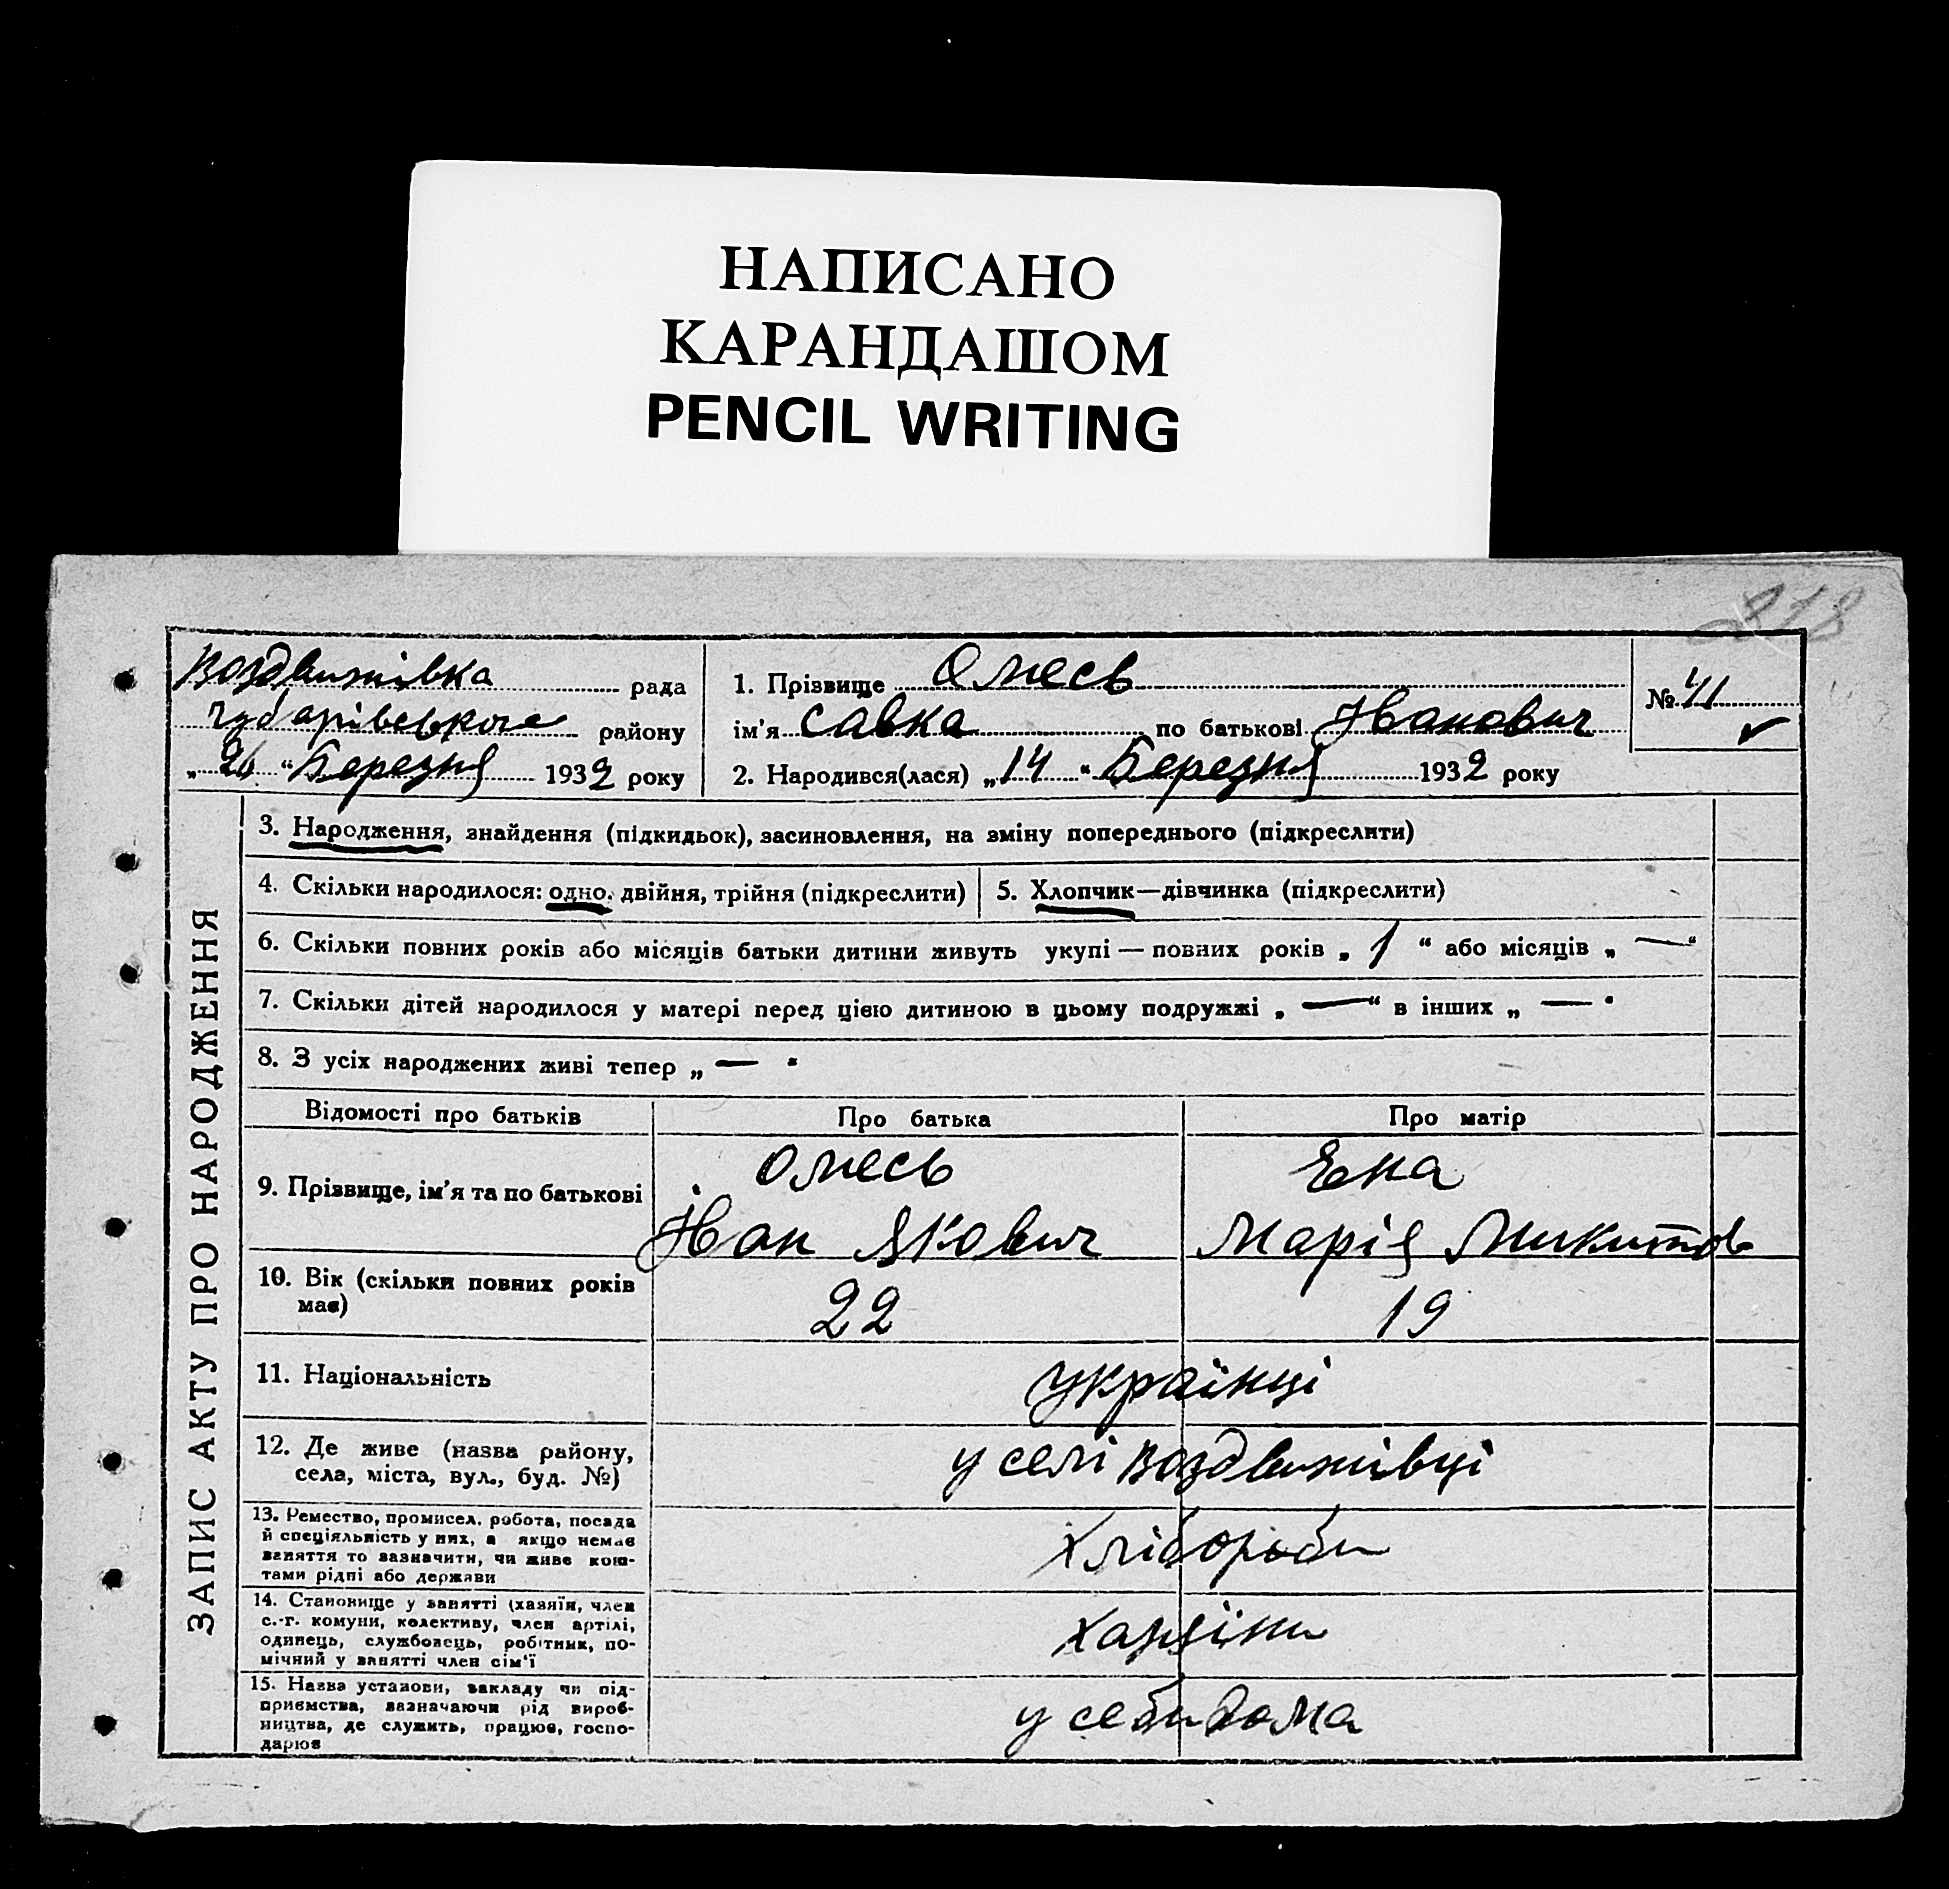 НАПИСАНО
КАРАНДАШОМ
PENCIL WRITING
378
Воздвижівка рада
Чубарівського району
„26“ Березня 1932 року
1. Прізвище Омесь
ім'я Савка по батькові Іванович
2. Народився(лася) „14“ Березня 1932 року
№ 41
ЗАПИС АКТУ ПРО НАРОДЖЕННЯ
3. Народження, знайдення (підкидьок), засиновлення, на зміну попереднього (підкреслити)
4. Скільки народилося: одно, двійня, трійня (підкреслити)
5. Хлопчик—дівчинка (підкреслити)
6. Скільки повних років або місяців батьки дитини живуть укупі — повних років „ 1 “ або місяців „ — “
7. Скільки дітей народилося у матері перед цією дитиною в цьому подружжі „ — “ в інших „ — “
8. З усіх народжених живі тепер „ — “
Відомості про батьків
Про батька
Про матір
9. Прізвище, ім'я та по батькові
Омесь
Іван Якович
Ена
Марія Микитов
10. Вік (скільки повних років
має)
22
19
11. Національність
українці
12. Де живе (назва району,
села, міста, вул., буд. №)
у селі Воздвижівці
13. Ремество, промисел, робота, посада
й спеціяльність у них, а якщо немає
заняття то зазначити, чи живе кош-
тами рідні або держави
Хлібороби
14. Становище у занятті (хазяїн, член
с.-г. комуни, колективу, член артілі,
одинець, службовець, робітник, по-
мічний у занятті член сім'ї
хазяїни
15. Назва установи, закладу чи під-
приємства, зазначаючи рід вироб-
ництва, де служить, працює, госпо-
дарює
у себи дома